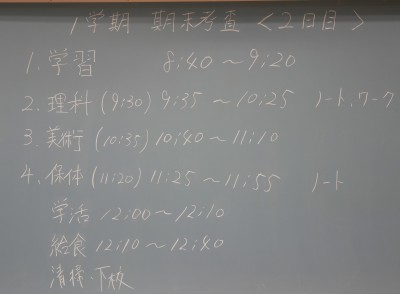 1学期 期末考査 <2日目>
1. 学習 8:40～9:20
2. 理科 (9:30) 9:35～10:25 ノート、ワーク
3. 美術 (10:35) 10:40～11:10
4. 保体 (11:20) 11:25～11:55 ノート
学活 12:00～12:10
給食 12:10～12:40
清掃・下校